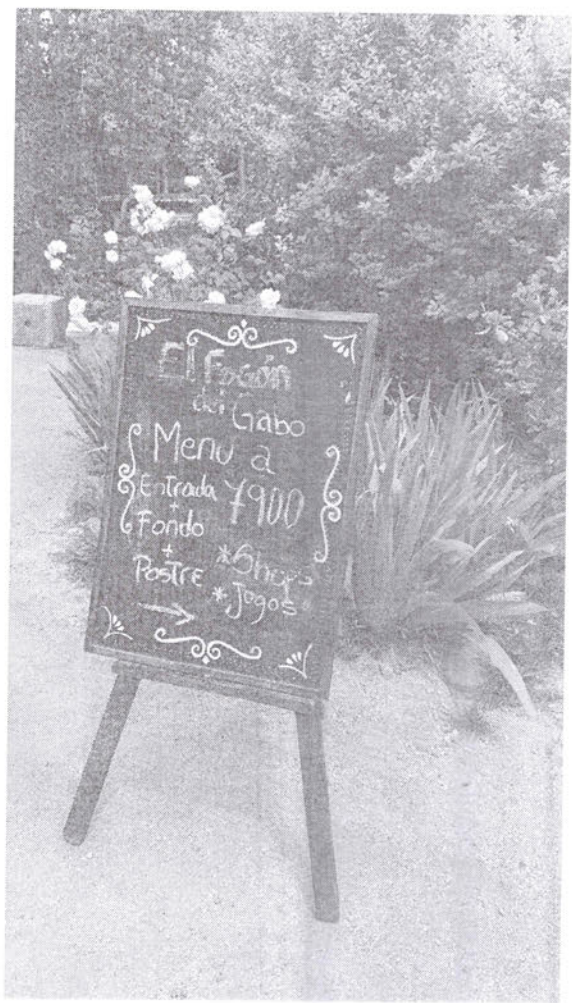 El Fogón
del Gabo
Menu a
7900
Entrada
+
Fondo
+
Postre
*Shops
*Jugos